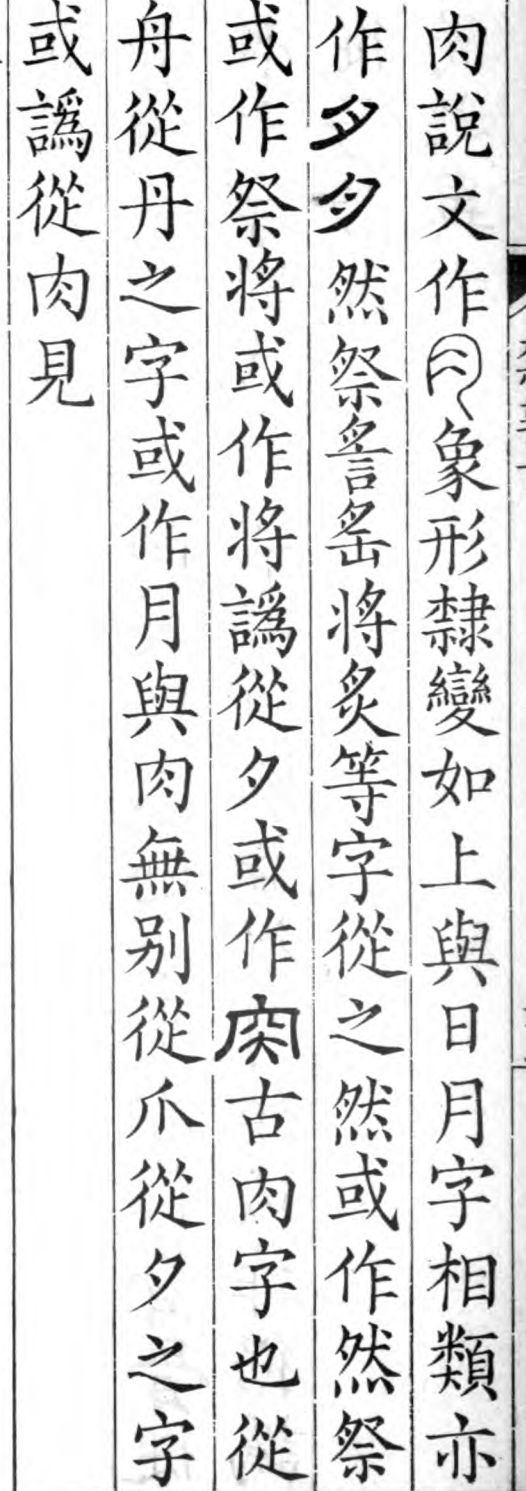 肉說文作象形隸變如上與日月字相類亦
作然祭詧䍃將炙等字從之然或作然祭
或作祭將或作將譌從夕或作古肉字也從
舟從丹之字或作月與肉無别從爪從夕之字
或譌從肉見